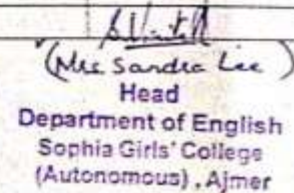 (Mrs Sandra Lee)
Head
Department of English
Sophia Girls' College
(Autonomous), Ajmer